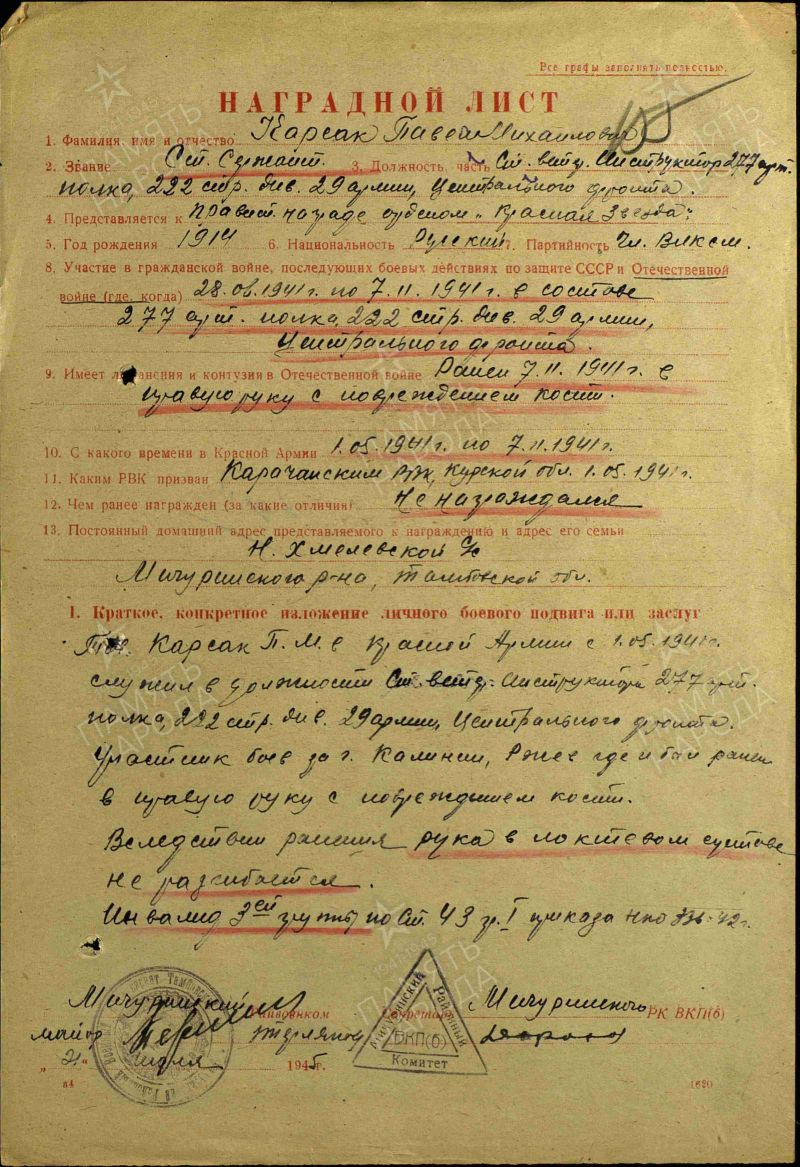 Все графы заполнять полностью.
НАГРАДНОЙ ЛИСТ
1. Фамилия, имя и отчество Карсак Павел Михайлович
2. Звание Ст. Сержант. 3. Должность, часть Ст. вет. Инструктор 277 арт.
полка, 222 стр. див. 29 армии, Центрального фронта.
4. Представляется к правит. награде орденом "Красная Звезда".
5. Год рождения 1914 6. Национальность Русский 7. Партийность Чл. Влксм.
8. Участие в гражданской войне, последующих боевых действиях по защите СССР и Отечественной
войне (где, когда) 28.08.1941 г. по 7.11.1941 г. в составе
277 арт. полка, 222 стр. див. 29 армии,
Центрального фронта.
9. Имеет ли ранения и контузии в Отечественной войне Ранен 7.11.1941 г. в
правую руку с повреждением кости.
10. С какого времени в Красной Армии 1.05.1941 г. по 7.11.1941 г.
11. Каким РВК призван Курской обл. 1.05.1941 г.
12. Чем ранее награжден (за какие отличия) Не награждался
13. Постоянный домашний адрес представляемого к награждению и адрес его семьи
Н. Хмелевской С/с
Мичуринского р-на, Тамбовской обл.
I. Краткое, конкретное изложение личного боевого подвига или заслуг
Тов. Карсак П. М. в Красной Армии с 1.05.1941 г.
служил в должности Ст. вет. Инструктора 277 арт.
полка, 222 стр. див. 29 армии, Центрального фронта.
Участник боев за г. Калинин, Ржев где и был ранен
в правую руку с повреждением кости.
Вследствии ранения рука в локтевом суставе
не разгибается.
Инвалид 3ей группы по Ст. 43 гр. I приказа нко 336-42 г.
Мичуринский Райвоенком Секретарь Мичуринского РК ВКП(б)
майор
"21" июля 1945 г.
Мичуринский Районный Комитет ВКП(б)
84 1620
ПАМЯТЬ НАРОДА